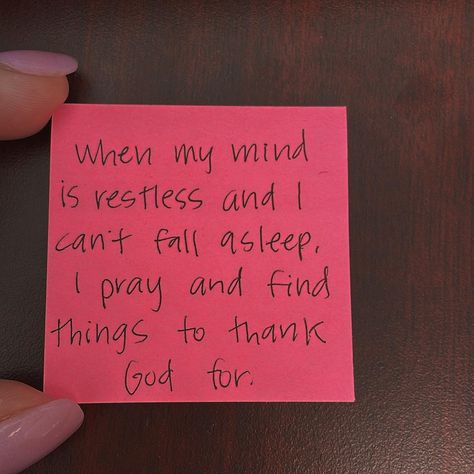 When my mind
is restless and I
can't fall asleep,
I pray and find
things to thank
God for.